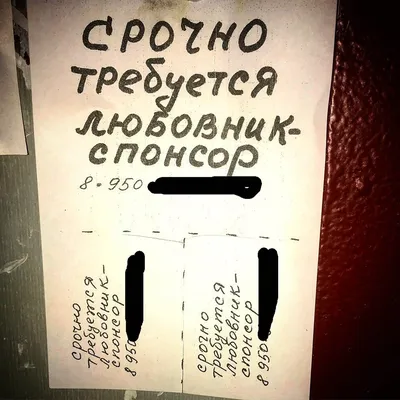 СРОЧНО
требуется
ЛЮБОВНИК-
СПОНСОР
8-950
срочно
требуется
любовник-
спонсор
8 950
срочно
требуется
любовник-
спонсор
8 950